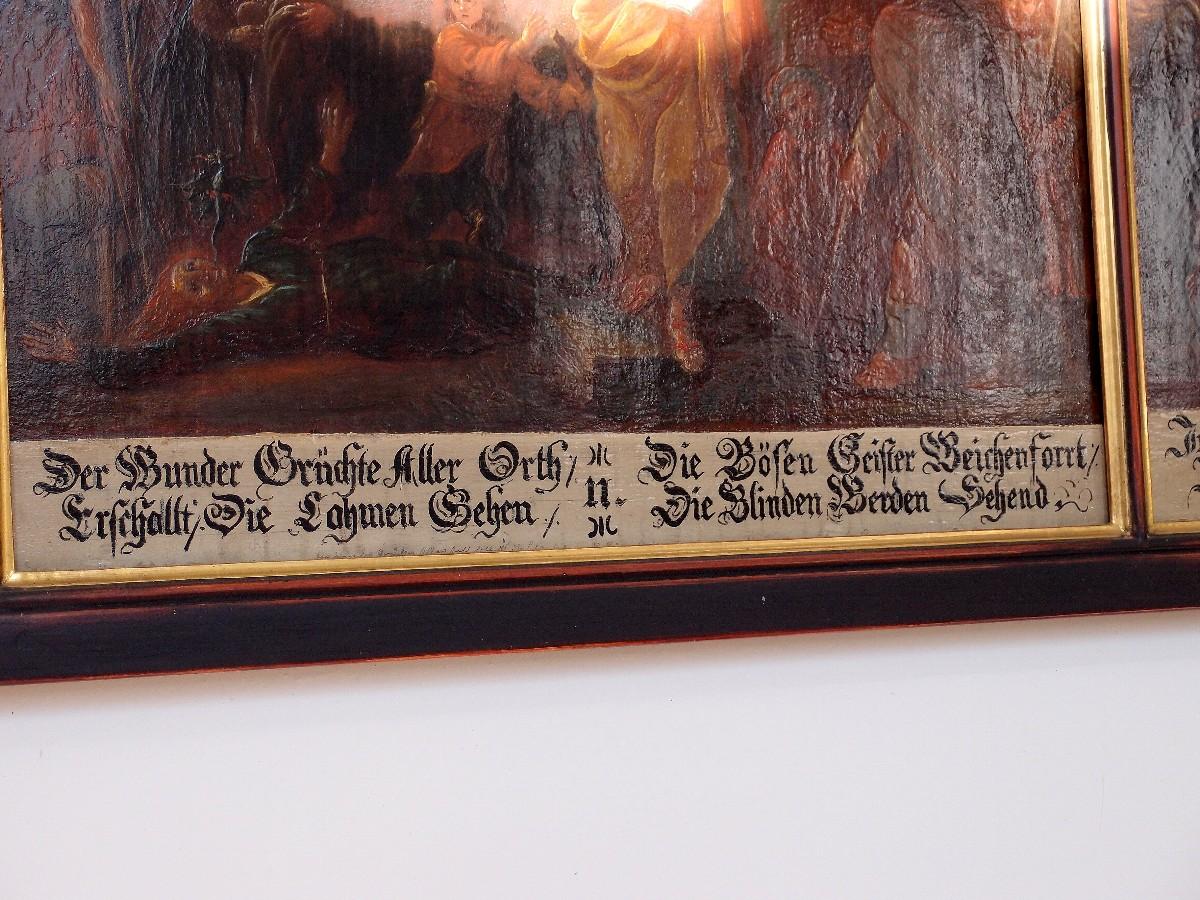 Der Wunder Grüchte Aller Orth/
Erschallt/ Die Lahmen Gehen/.
11.
Die Bösen Geister Weichen forrt/.
Die Blinden Werden Sehend